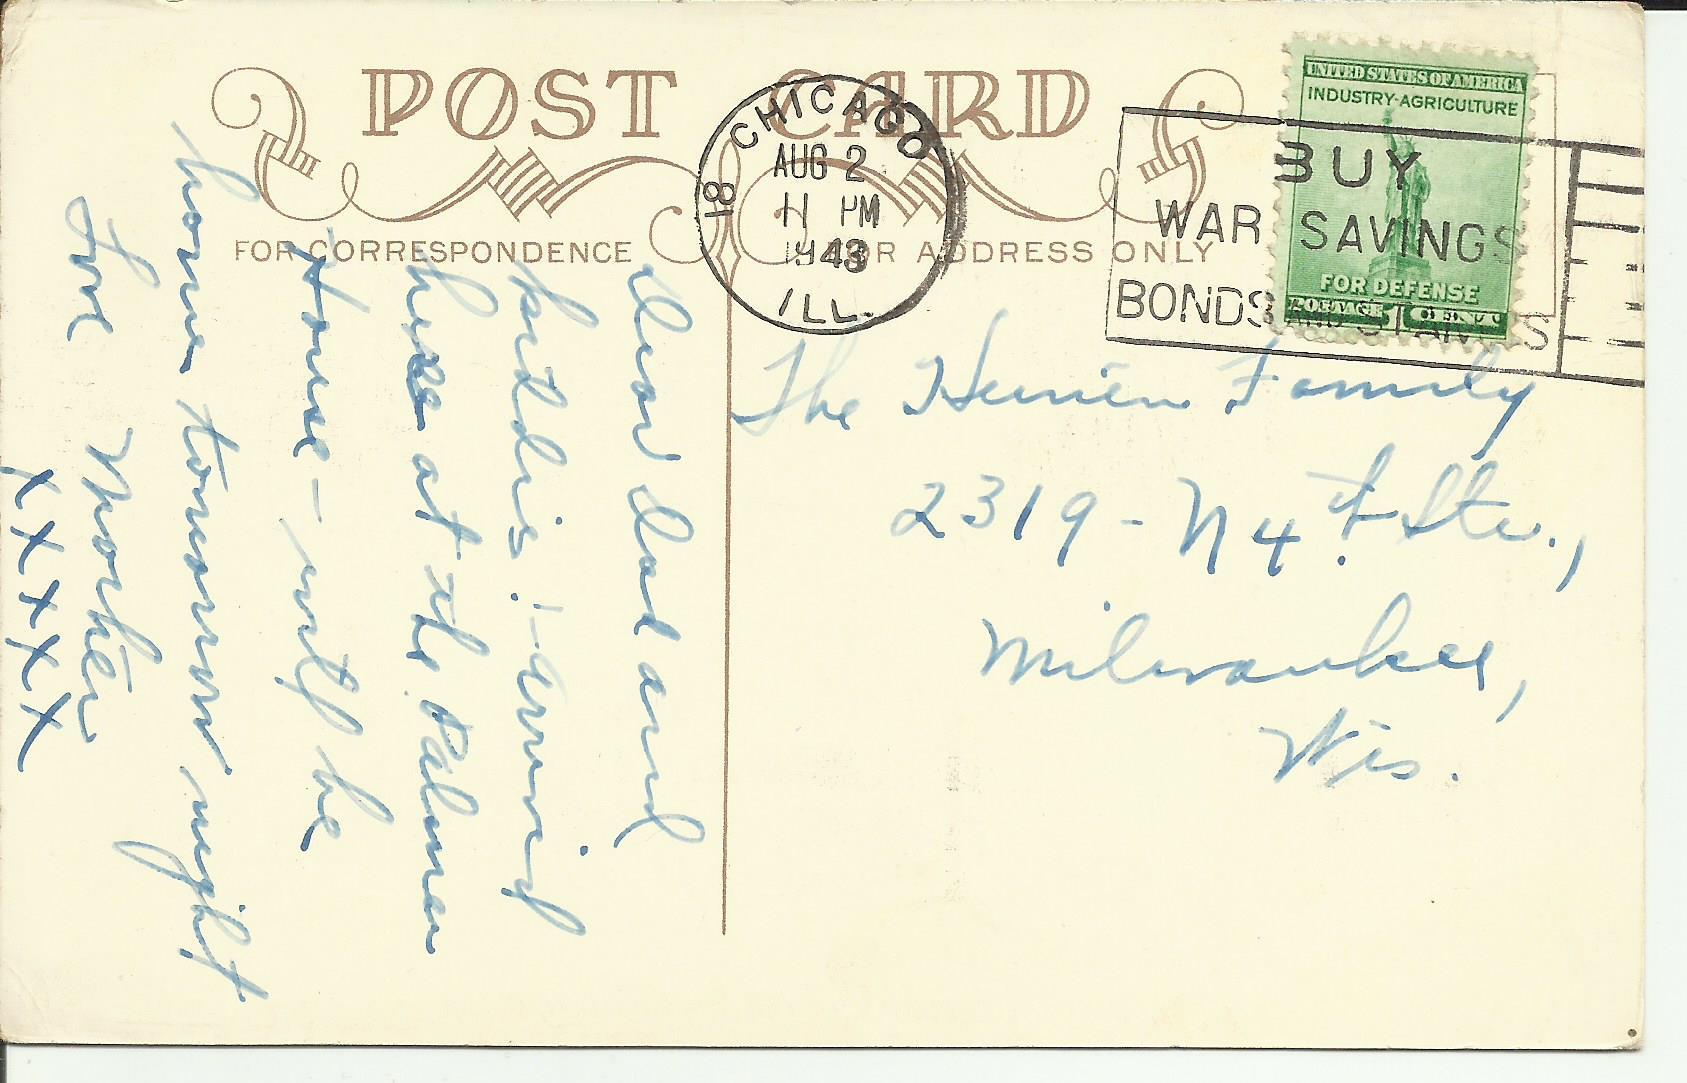 POST CARD
FOR CORRESPONDENCE
FOR ADDRESS ONLY
CHICAGO
AUG 2
11 PM
1943
ILL.
18
BUY
WAR SAVINGS
BONDS AND STAMPS
UNITED STATES OF AMERICA
INDUSTRY-AGRICULTURE
FOR DEFENSE
POSTAGE 1 CENT
Dear Dad and
kiddis: - arrived
here at the Palmer
House - will be
home tomorrow night
Love Mother
XXXXX
The Family
2319 - N 4th Str.,
Milwaukee,
Wis.